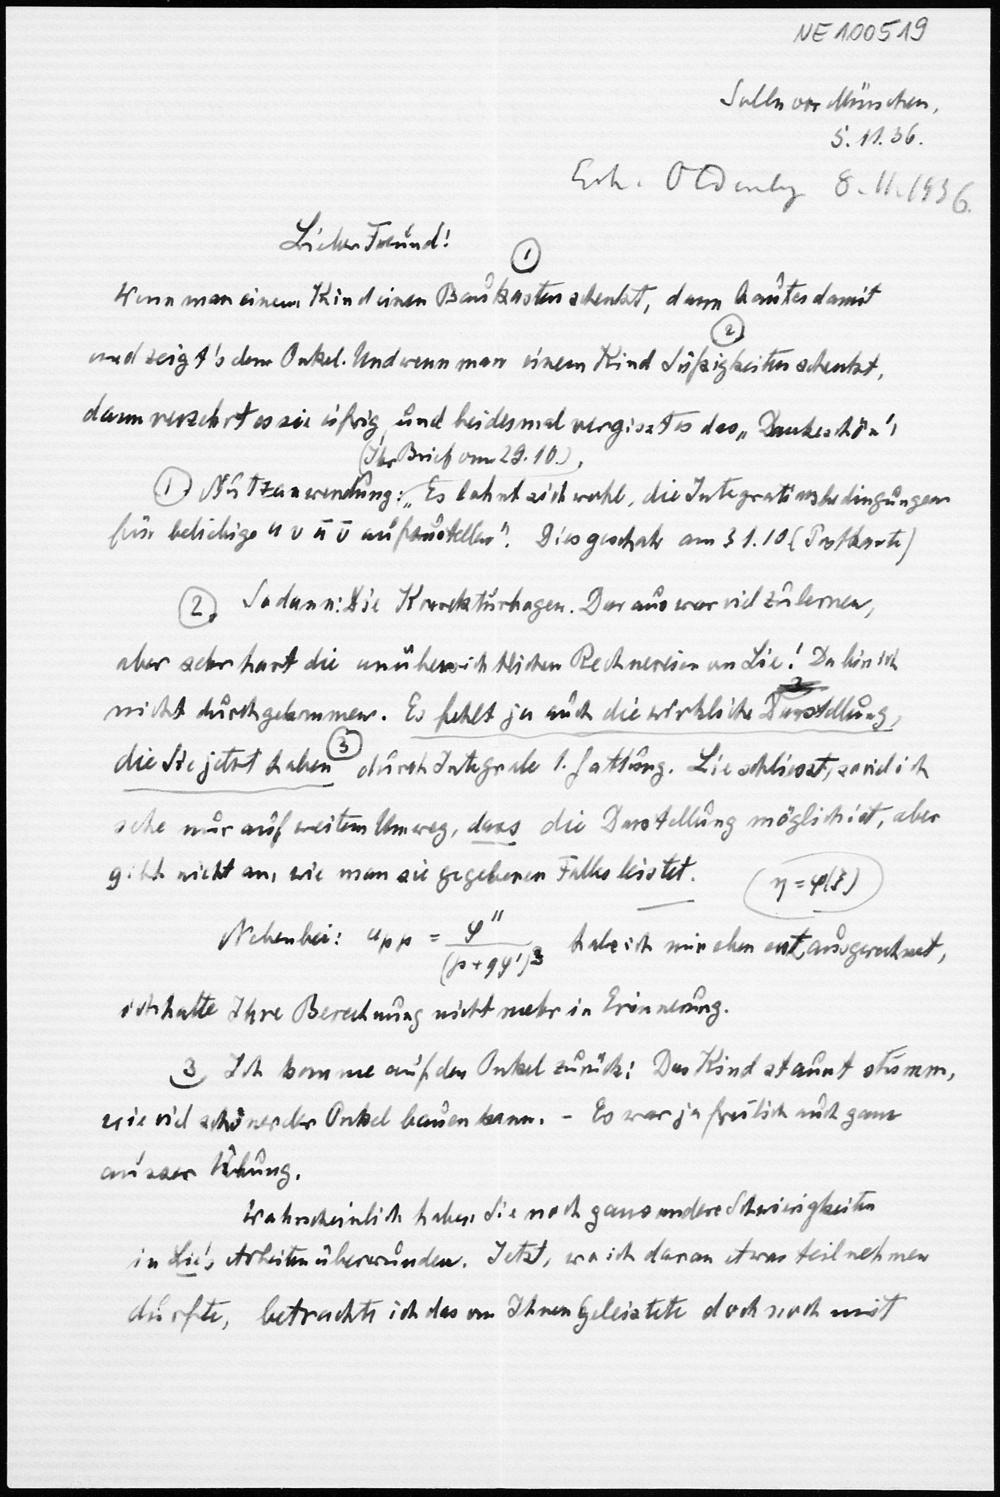 NE 100519
Solln vor München,
5.11.36.
Erh. Oldenbg 8.11.1936.
Lieber Freund!
①
Wenn man einem Kind einen Baukasten schenkt, dann baut es damit
②
und zeigt's dem Onkel. Und wenn man einem Kind Süßigkeiten schenkt,
dann verzehrt es sie eifrig und beidesmal vergisst es das „Dankeschön“!
(Ihr Brief vom 29.10.),
① Nutzanwendung: „Es lohnt sich wohl, die Integrationsbedingungen
für beliebige u v ū v̄ aufzustellen“. Dies geschah am 31.10 (Postkarte)
②. Sodann: Die Korrekturbogen. Daraus war viel zu lernen,
aber sehr hart die unübersichtlichen Rechnereien von Lie! Da bin ich
nicht durchgekommen. Es fehlt ja auch die wirkliche Darstellung,
die Sie jetzt haben ③ durch Integrale 1. Gattung. Lie schliesst, soviel ich
sehe nur auf weitem Umweg, dass die Darstellung möglich ist, aber
gibt nicht an, wie man sie gegebenen Falles leistet.
η = φ(ξ)
Nebenbei: u_pp = φ'' / (p+qφ')³ habe ich mir eben erst ausgerechnet,
ich hatte Ihre Berechnung nicht mehr in Erinnerung.
3 Ich komme auf den Onkel zurück: Das Kind staunt stumm,
wie viel schöner der Onkel bauen kann. – Es war ja freilich auch ganz
ausser Übung.
Wahrscheinlich haben Sie noch ganz andere Schwierigkeiten
in Lie's Arbeiten überwunden. Jetzt, wo ich daran etwas teilnehmen
durfte, betrachte ich das von Ihnen Geleistete doch noch mit